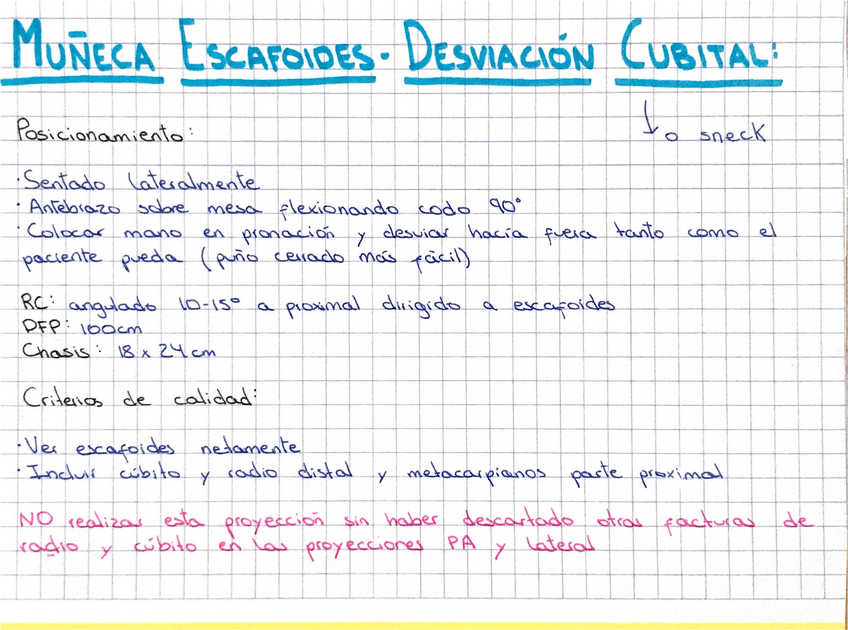 MUÑECA ESCAFOIDES - DESVIACIÓN CUBITAL:
↓ o sneck
Posicionamiento:
· Sentado lateralmente
· Antebrazo sobre mesa flexionando codo 90°
· Colocar mano en pronación y desviar hacia fuera tanto como el
paciente pueda (puño cerrado más fácil)
RC: angulado 10-15° a proximal dirigido a escafoides
DFP: 100cm
Chasis: 18 x 24 cm
Criterios de calidad:
· Ver escafoides netamente
· Incluir cúbito y radio distal y metacarpianos parte proximal
NO realizar esta proyección sin haber descartado otras facturas de
radio y cúbito en las proyecciones PA y lateral